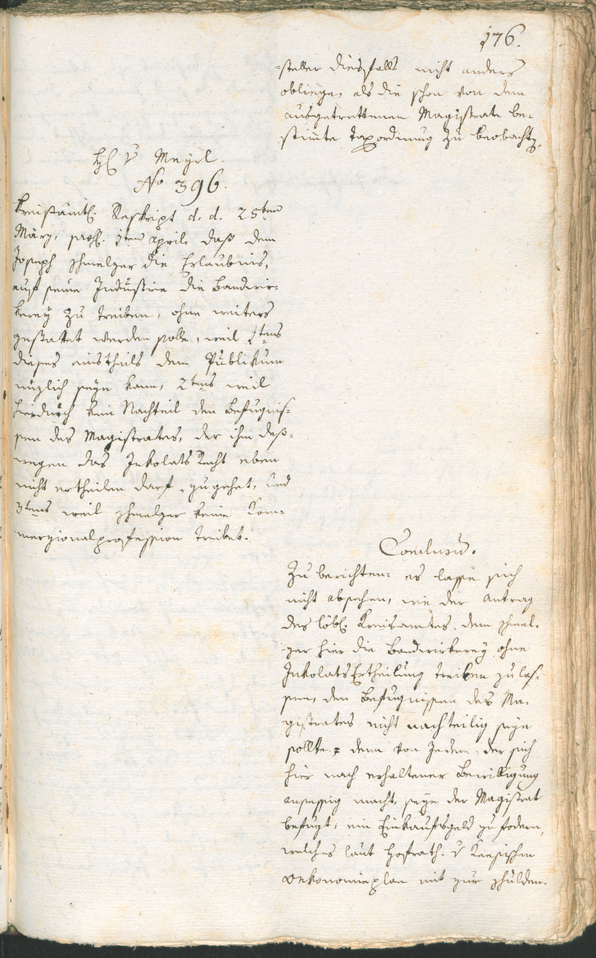 176.
steller diesfalls nicht anders
obliege, als die schon von dem
ausgetrettenen Magistrate be-
stimte Taxordnung zu beobachten.
H. v Mayrl.
No 396.
Kreisämtl. Reskript d. d. 25ten
März, praes. 1ten April, daß dem
Joseph Schmelzer die Erlaubnis,
auf seine Industrie die Bandwir-
kerey zu treiben, ohne weiters
gestattet werden solle, weil 1tens
dieses einstheils dem Publikum
nüzlich seyn kann, 2tens weil
hierdurch kein Nachteil den Befugnis-
sen des Magistrates, der ihm deß-
wegen das Inkolats Recht eben
nicht ertheilen darf, zugehet, und
3tens weil Schmelzer keine Kom-
merzionalprofession treibet.
Conclusum.
Zu berichten: es lasse sich
nicht absehen, wie der Antrag
des löbl. Kreisamtes, dem Schmel-
zer hier die Bandwirkerey ohne
Inkolats Ertheilung treiben zu las-
sen, den Befugnissen des Ma-
gistrates nicht nachteilig seyn
sollte: denn von Jedem, der sich
hier nach erhaltener Bewilligung
ansessig macht, seye der Magistrat
befugt, ein Einkaufsgeld zu fodern,
welches laut Hofrath. v
Oekonomieplan mit zur Schulden-